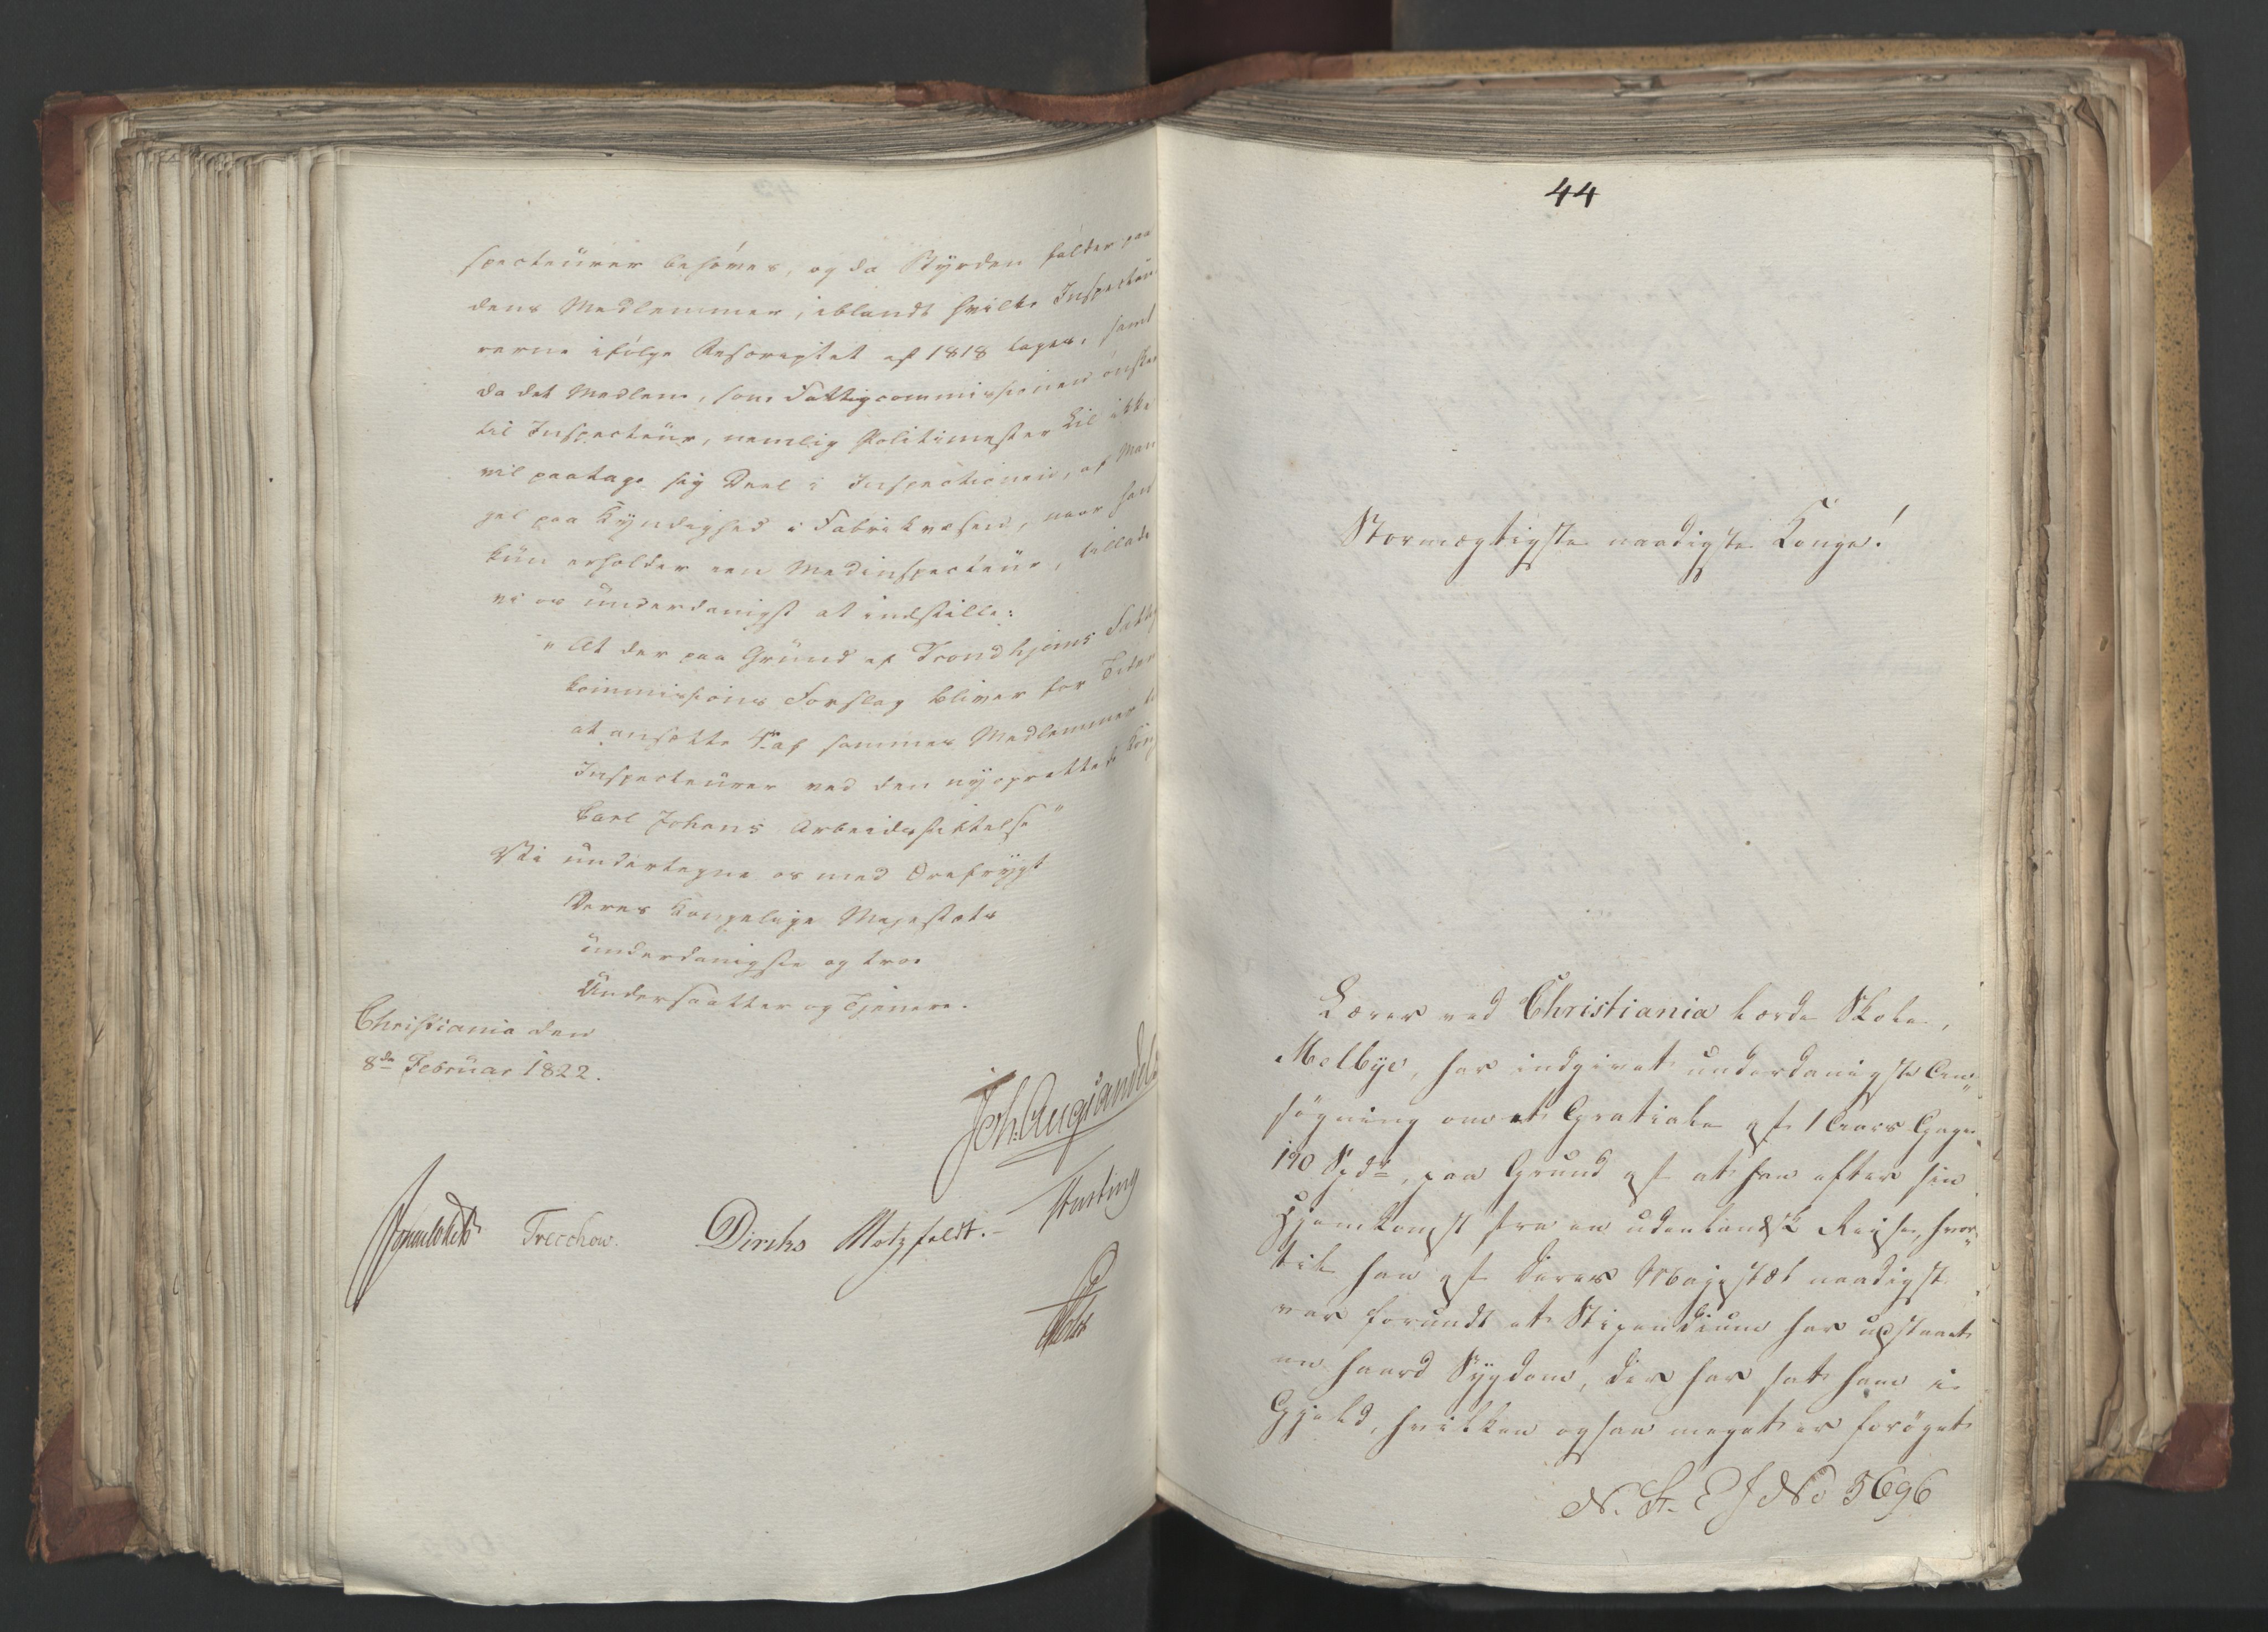 specteürer behøves, og da Byrden falder paa
dens Medlemmer, iblandt hvilke Inspecteü-
rerne ifølge Rescriptet af 1818 tages, samt
da det Medlem, som Fattigcommissionen ønsker
til Inspecteur, nemlig Politimester Kil ikke
vil paatage sig Deel i Inspectionen, af Man
gel paa Kyndighed i Fabrikvæsen, naar han
kün erholder een Medinspecteür, tillade
vi os ünderdanigst at indstille:
"At der paa Gründ af Trondhjems Fattig
kommissions Forslag bliver for Tiden
at ansætte af sammes Medlemmer til
Inspecteürer ved den nyoprettede Kong
Carl Johans Arbeidsstiftelse"
Vi ündertegne os med Ærefrygt
Deres Kongelige Majestæts
ünderdanigste og troe
Ündersaatter og Tjenere.
Christiania den
8de Februar 1822.
Joh. Aug. Sandels
Sommerhielm Treschow. Diriks Motzfeldt. Fasting
Holst
44
Stormægtigste naadigste Konge!
Lærer ved Christiania lærde Skole,
Melbye, har indgivet underdanigste An-
søgning om et Gratiale af 1 Aars Gage
170 Spd, paa Grund af at han efter sin
Hjemkomst fra en udenlandsk Reise, hvor-
til han af Deres Majestæt naadigst
var forundt et Stipendium har udstaaet
en haard Sygdom, der har sat ham i
Gjeld, hvilken ogsaa meget er forøget
N. St. E J No 5696